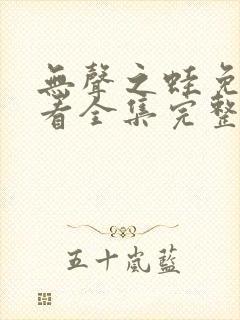 無聲之蛙免
看全集完整
五十嵐藍